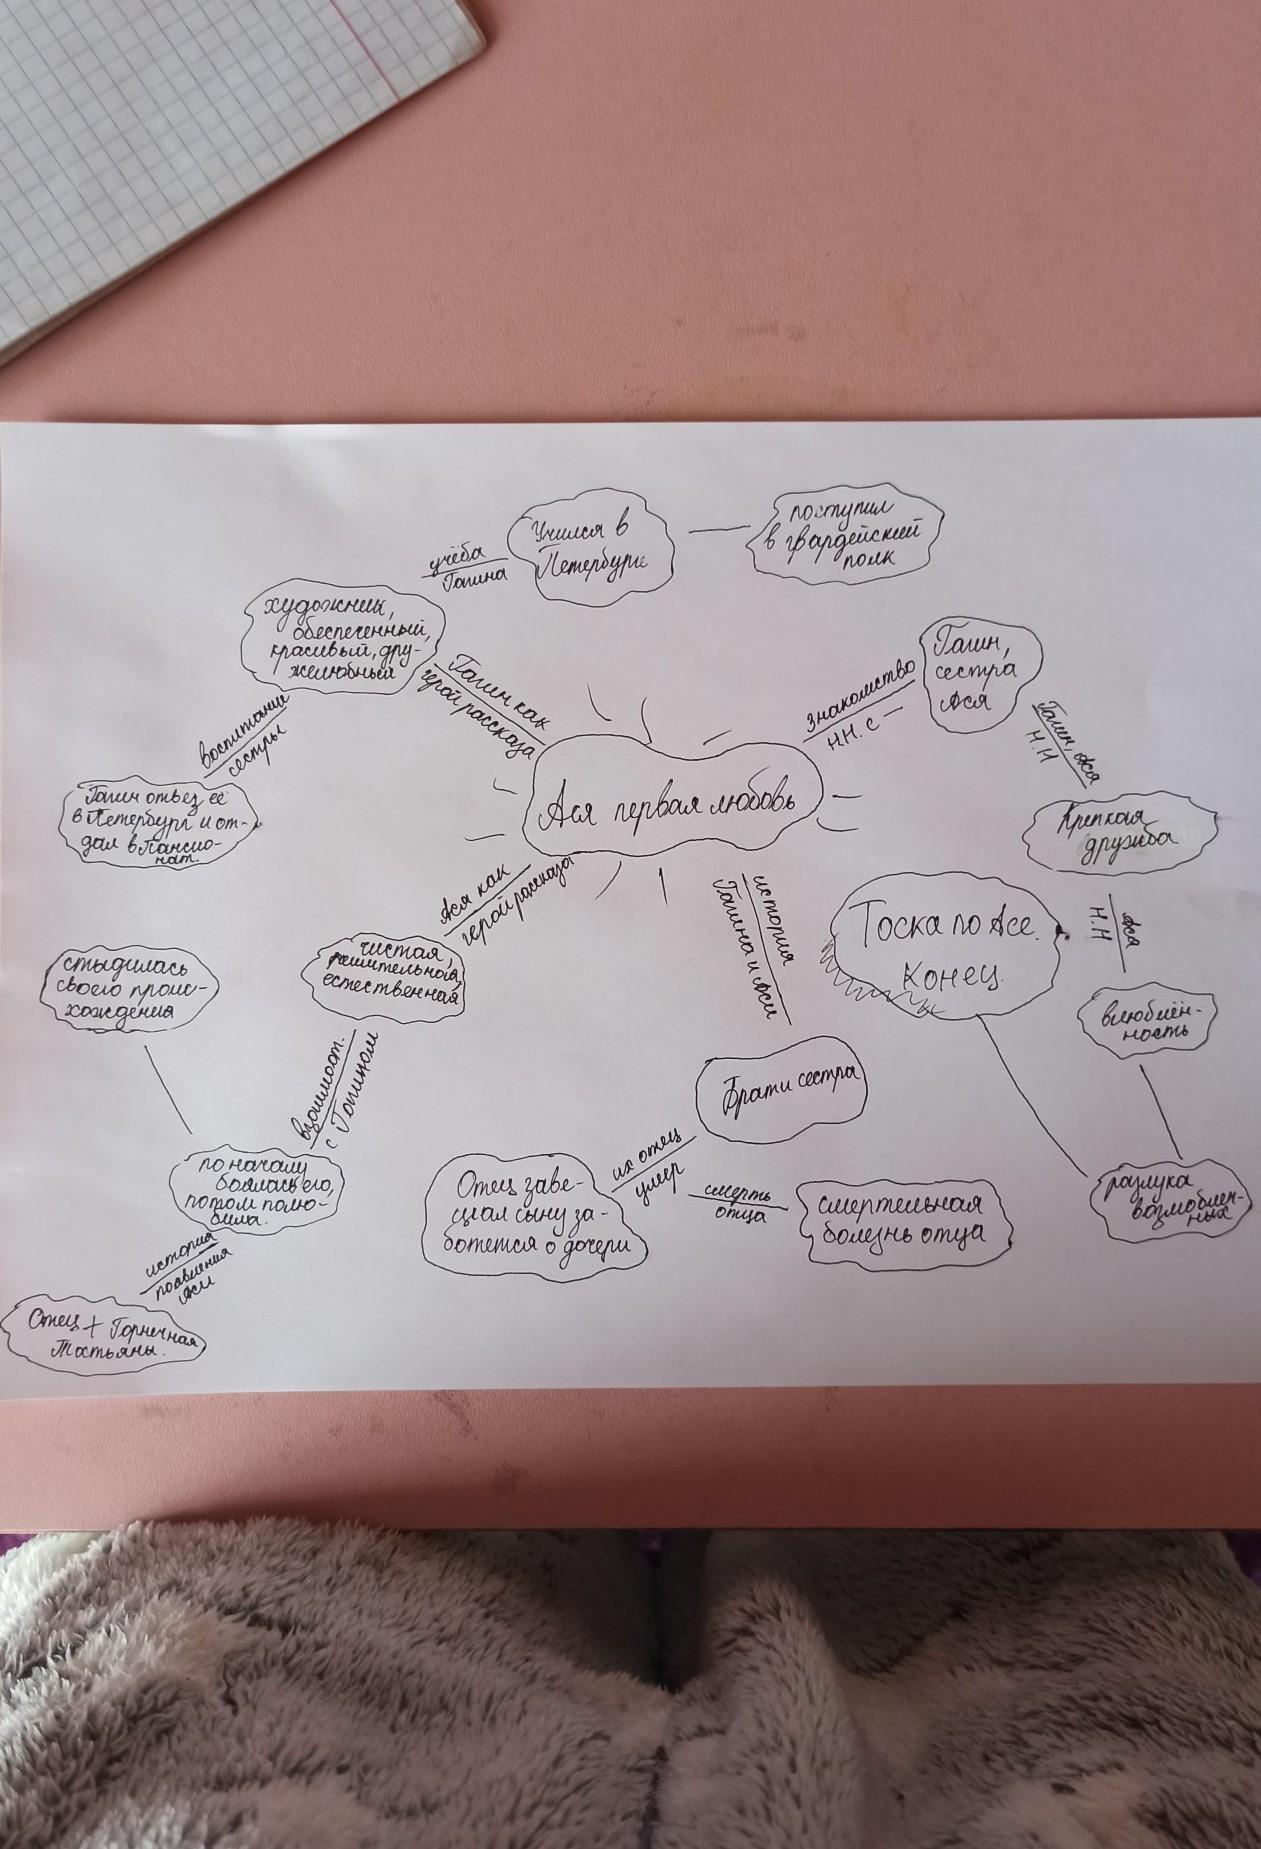 Учился в
Петербурге
поступил
в гвардейский
полк
учёба
Гагина
художник,
обеспеченный,
красивый, дру-
желюбный
Гагин как
герой рассказа
воспитание
сестры
Гагин отвез её
в Петербург и от-
дал в Пансио-
нат.
знакомство
Н.Н. с
Гагин,
сестра
Ася
Гагин, Ася
Н.Н
Крепкая
дружба
Ася
Н.Н
влюблён-
ность
разлука
возлюблен-
ных
Тоска по Асе.
Конец.
Ася первая любовь
Ася как
герой рассказа
чистая,
решительная,
естественная
взаимоот.
с Гагином
стыдилась
своего проис-
хождения
по началу
боялась его,
потом полю-
била.
история
появления
Аси
Отец + Горничная
Татьяны.
история
Гагина и Аси
Брат и сестра
их отец
умер
Отец заве-
щал сыну за-
ботется о дочери
смерть
отца
смертельная
болезнь отца